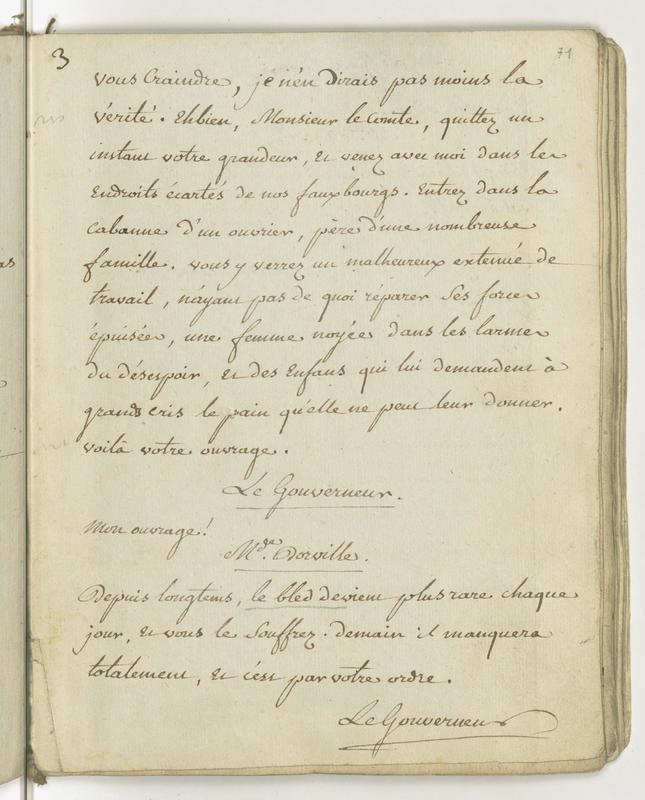 3
71
vous Craindre, je n'en Dirais pas moins la
vérité. Ehbien, Monsieur le Comte, quittez un
instant votre grandeur, Et venez avec moi dans les
Endroits écartés de nos fauxbourgs. Entrez dans la
Cabanne d'un ouvrier, père d'une nombreuse
famille. vous y verrez un malheureux extenué de
travail, n'ayant pas de quoi réparer Ses forces
épuisées, une femme noyée dans les larmes
du désespoir, Et des Enfans qui lui demandent à
grands cris le pain qu'elle ne peut leur donner.
voilà votre ouvrage.
Le Gouverneur.
Mon ouvrage!
Mde. Dorville.
Depuis longtems, le bled devient plus rare chaque
jour, Et vous le Souffrez. demain il manquera
totalement, Et c'est par votre ordre.
Le Gouverneur